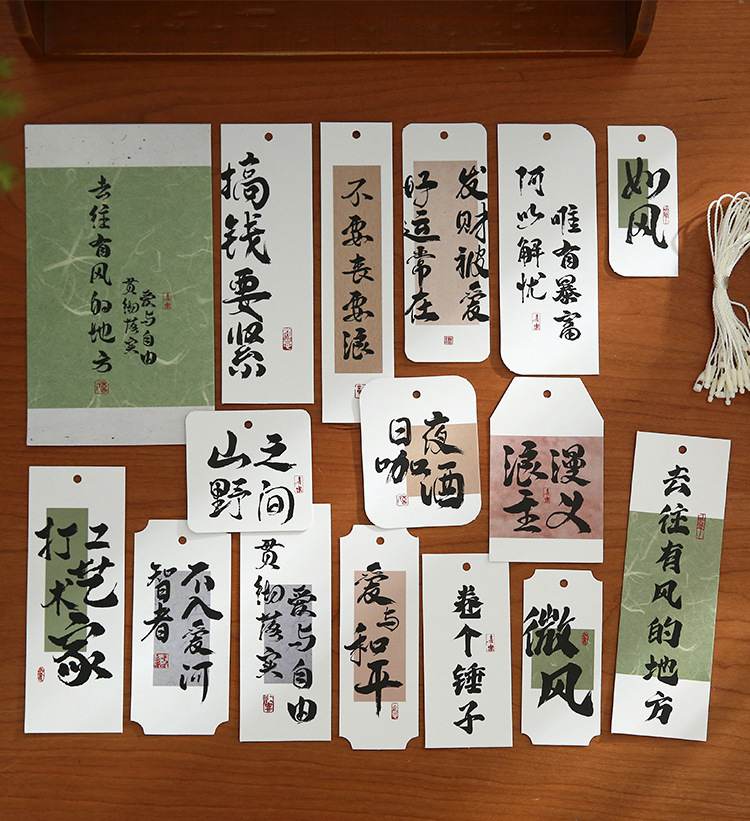 去往有风的地方
贯彻落实
爱与自由
搞钱要紧
不要丧要浪
好运常在
发财被爱
何以解忧
唯有暴富
如风
山野
之间
日咖
夜酒
浪漫
主义
打工
艺术家
智者
不入爱河
贯彻落实
爱与自由
爱与
和平
卷个锤子
微风
去往有风的地方